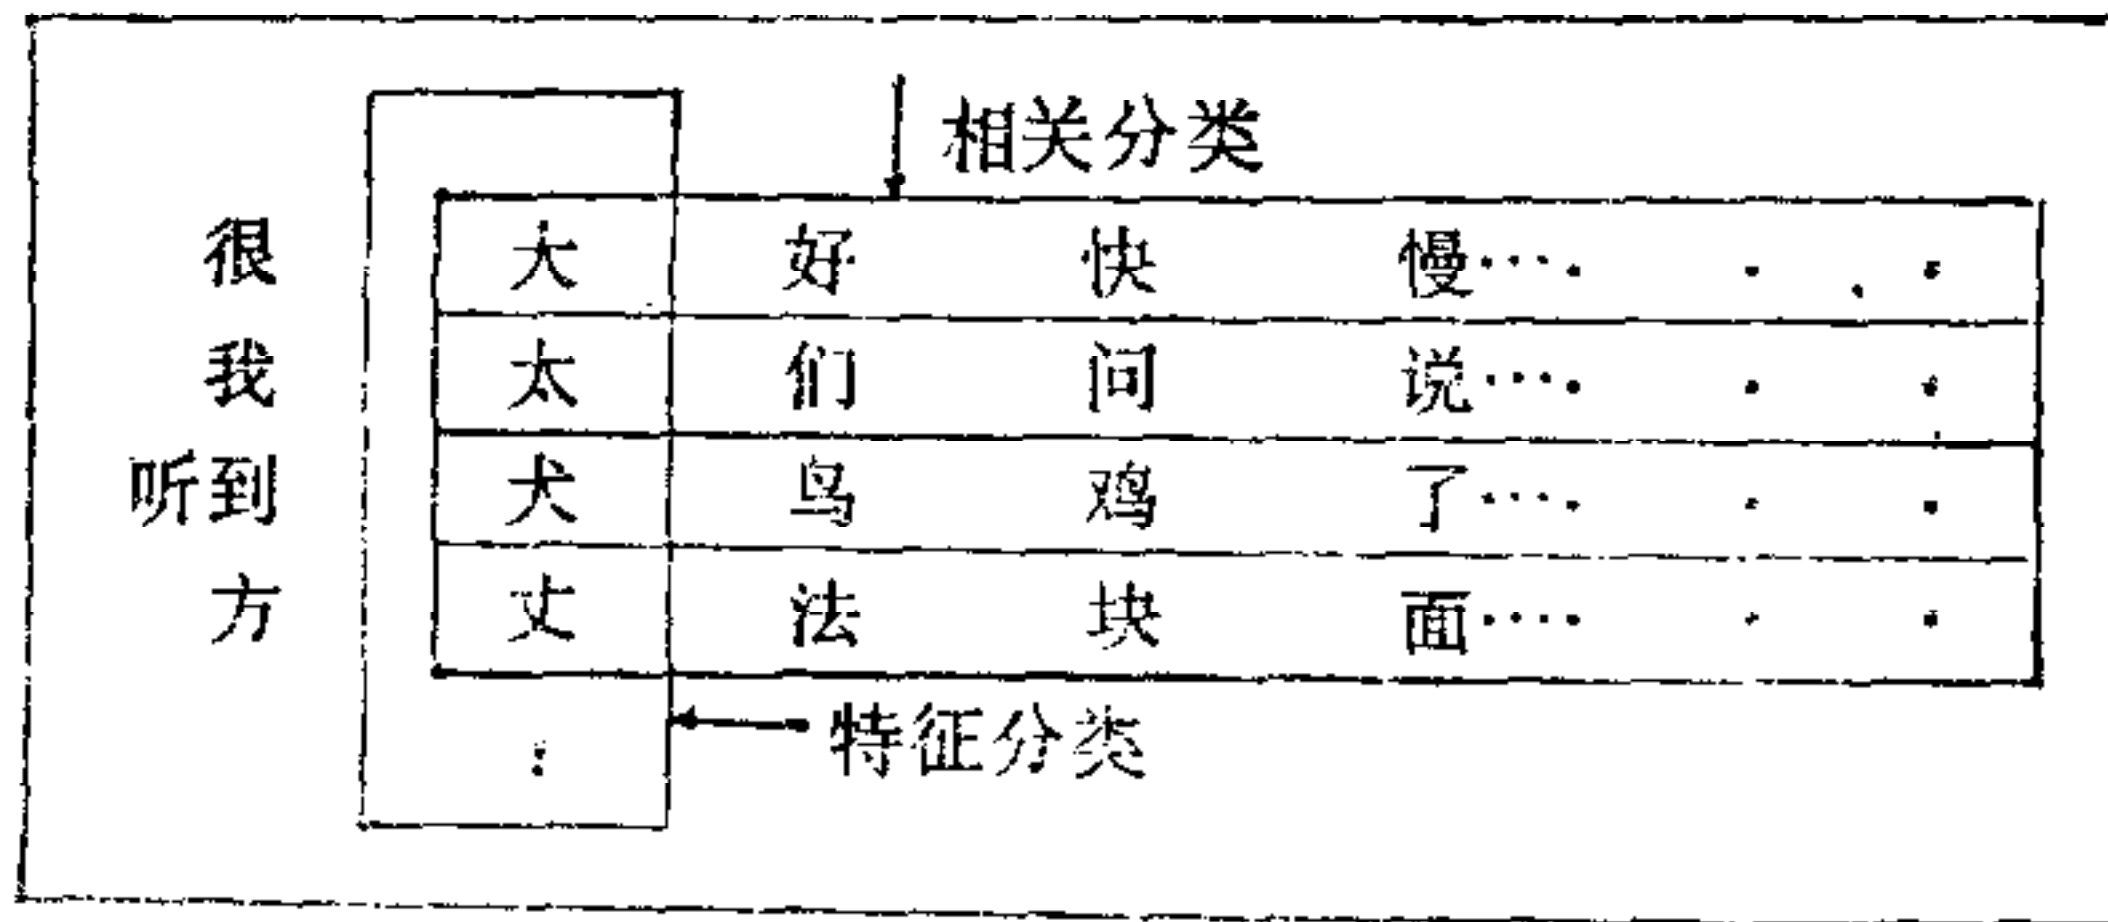 相关分类
很 大 好 快 慢····
我 太 们 问 说····
听到 犬 鸟 鸡 了····
方 丈 法 块 面····
特征分类